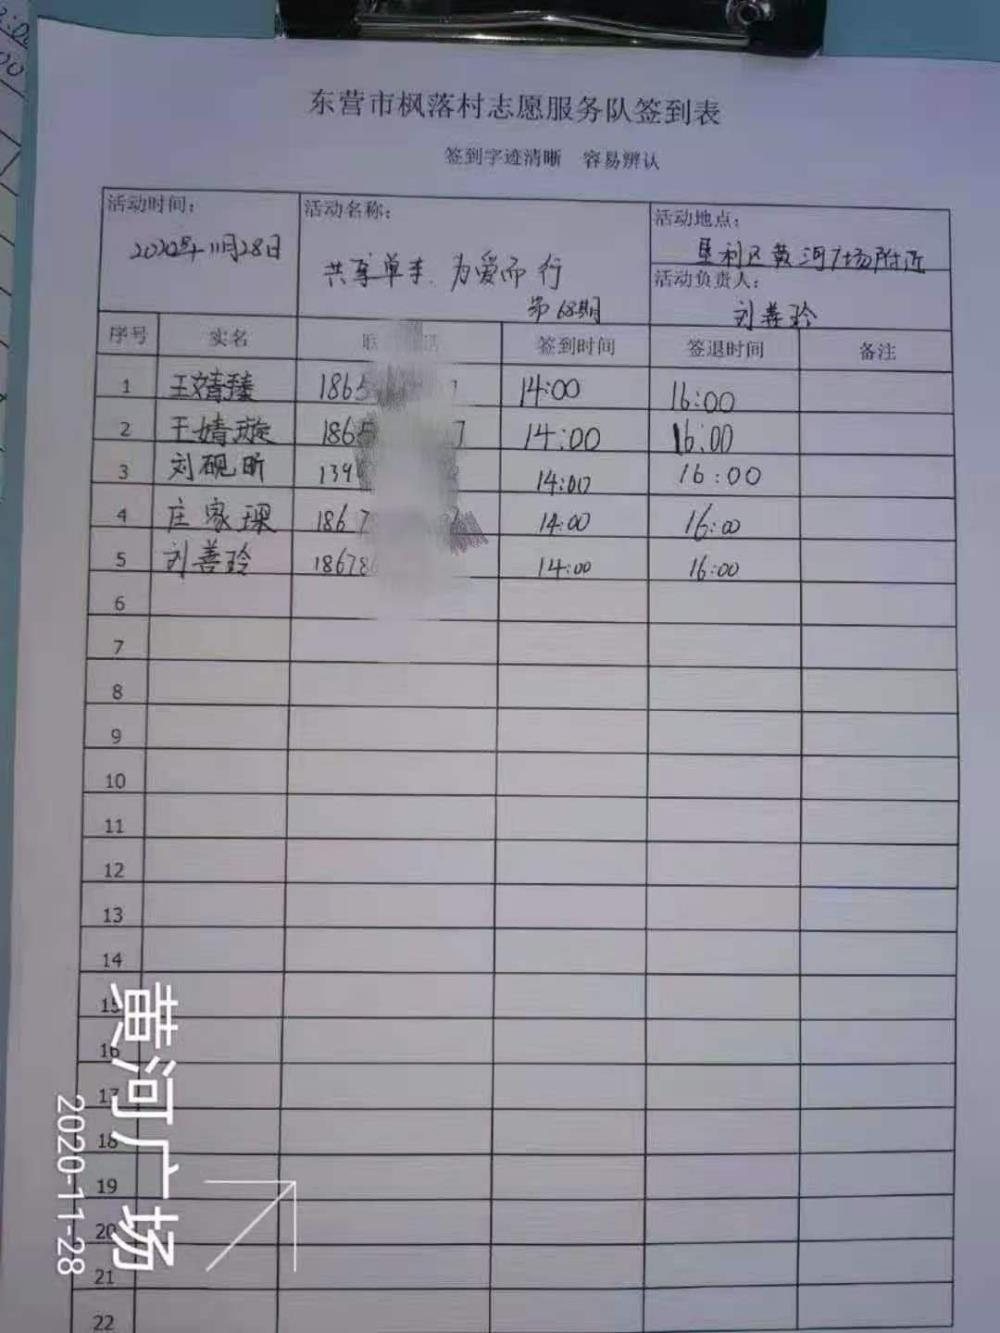 东营市枫落村志愿服务队签到表
签到字迹清晰 容易辨认
活动时间：
2020年11月28日
活动名称：
共享单车、为爱而行
第68期
活动地点：
垦利区黄河广场附近
活动负责人：
刘善玲
序号 实名 联 话 签到时间 签退时间 备注
1 王婧臻 1865 14:00 16:00
2 王婧璇 1865 14:00 16:00
3 刘砚昕 139 14:00 16:00
4 庄家琛 1867 14:00 16:00
5 刘善玲 186786 14:00 16:00
6
7
8
9
10
11
12
13
14
15
16
17
18
19
20
21
22
黄河广场
2020-11-28